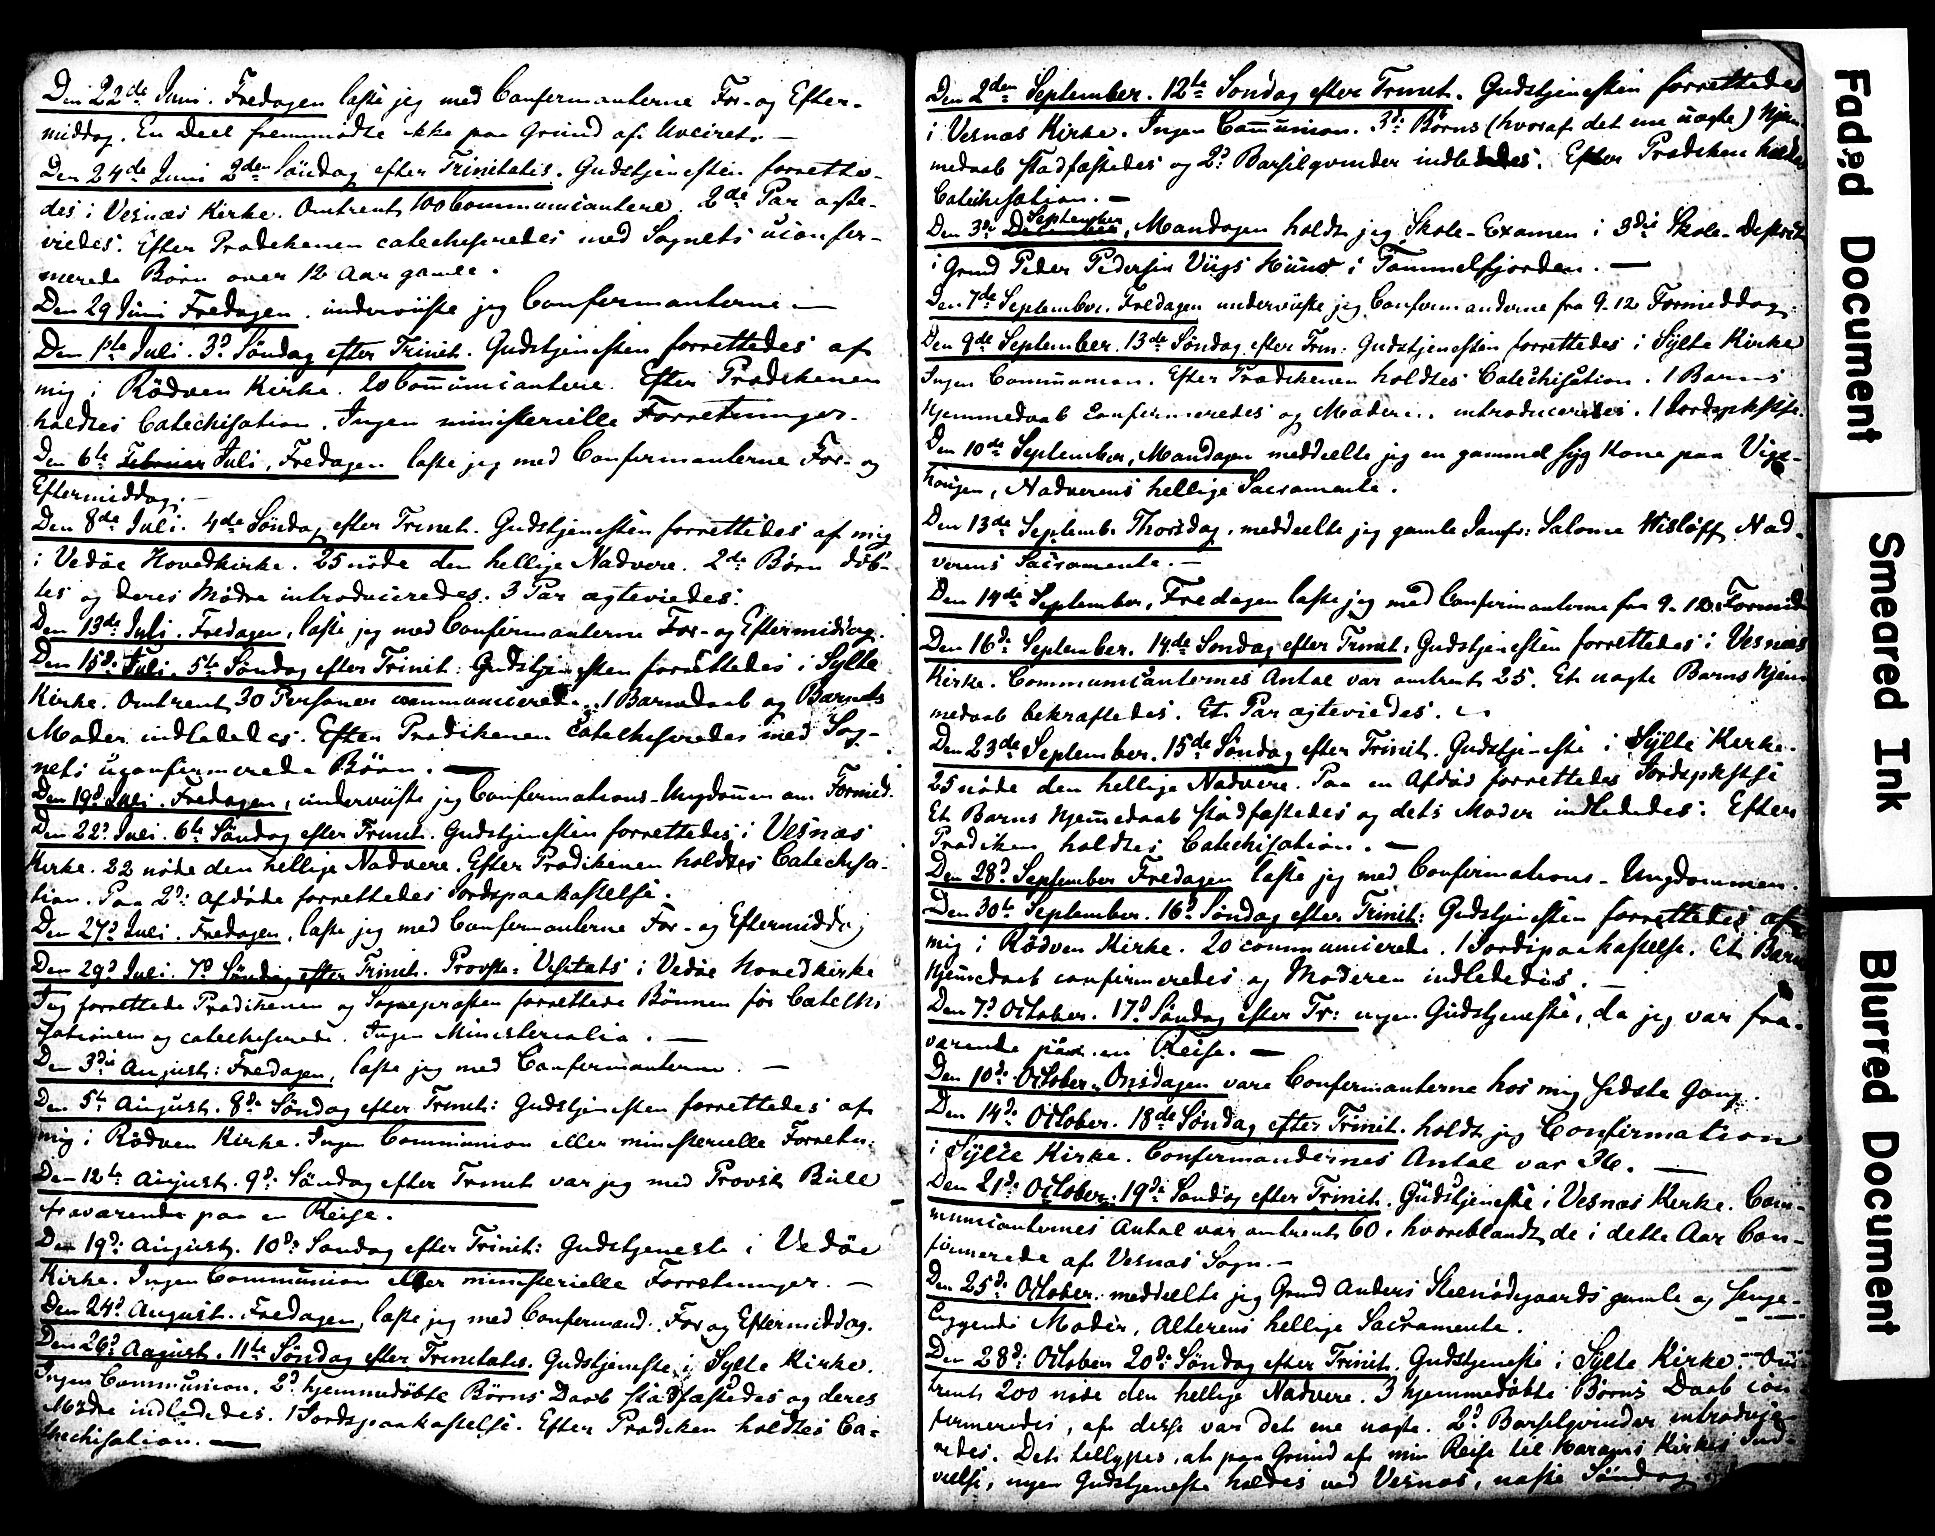 Den 22de Juni. Fredagen læste jeg med Confirmanterne For- og Efter-
middag. En Deel fremmødte ikke paa Grund af Uveiret. —
Den 24de Juni 2den Søndag efter Trinitatis. Gudstjenesten forrette-
des i Vesnæs Kirke. Omtrent 100 Communicantere. 2de Par ægte-
viedes. Efter Prædikenen catechiseredes med Sognets uconfir-
merede Børn over 12 Aar gamle.
Den 29 Juni Fredagen. underviiste jeg Confirmanterne —
Den 1ste Juli. 3d Søndag efter Trinit. Gudstjenesten forrettedes af
mig i Rødven Kirke. 20 Communicantere. Efter Prædikenen
holdtes Catechisation. Ingen ministerielle Forretninger.
Den 6te Februar Juli, Fredagen læste jeg med Confirmanterne For- og
Eftermiddag. —
Den 8de Juli. 4de Søndag efter Trinit. Gudstjenesten forrettedes af mig
i Vedøe Hovedkirke. 25 nøde den hellige Nadvere. 2de Børn døb-
tes og deres Mødre introduceredes. 3 Par ægteviedes.
Den 13de Juli. Fredagen, læste jeg med Confirmanterne For- og Eftermiddag.
Den 15d: Juli. 5te Søndag efter Trinit: Gudstjenesten forrettedes i Sylte
Kirke. Omtrent 30 Personer communicerede. 1 Barnedaab og Barnets
Moder indlededes. Efter Prædikenen catechiseredes med Sog-
nets uconfirmerede Børn. —
Den 19d Juli. Fredagen, underviiste jeg Confirmations-Ungdommen om Formid.
Den 22d Juli. 6te Søndag efter Trinit. Gudstjenesten forrettedes i Vesnæs
Kirke. 22 nøde den hellige Nadvere. Efter Prædikenen holdtes Catechisa-
tion. Paa 2d: Afdøde forrettedes Jordspaakastelse.
Den 27d Juli. Fredagen, læste jeg med Confirmanterne For- og Eftermiddag
Den 29d Juli. 7d Søndag efter Trinit. Provste-Visitats i Vedøe Hovedkirke
Jeg forrettede Prædikenen og Sognepræsten forrettede Bønnen før Catechi
sationen og catechiserede. Ingen Ministerialia. —
Den 3die August: Fredagen, læste jeg med Confirmanterne. —
Den 5te August. 8de Søndag efter Trinit: Gudstjenesten forrettedes af
mig i Rødven Kirke. Ingen Communion eller ministerielle Forretn:
Den 12te August. 9d: Søndag efter Trinit var jeg med Provst Bull
fraværende paa en Reise.
Den 19d: August. 10d: Søndag efter Trinit: Gudstjeneste i Vedøe
Kirke. Ingen Communion eller ministerielle Forretninger. —
Den 24d August. Fredagen, læste jeg med Confirmand. For og Eftermiddag.
Den 26d August. 11te Søndag efter Trinitatis. Gudstjeneste i Sylte Kirke.
Ingen Communion. 2d hjemmedøbte Børns Daab stadfæstedes og deres
Mødre indlededes. 1 Jordspaakastelse. Efter Prædiken holdtes Ca-
techisation. —
Den 2den September. 12te Søndag efter Trinit. Gudstjenesten forrettedes
i Vesnæs Kirke. Ingen Communion. 3d: Børns (hvoraf det ene uægte) Hjem-
medaab stadfæstedes og 2d Barselqvinder indlededes. Efter Prædiken holdtes
Catechisation. —
Den 3die December September, Mandagen holdt jeg Skole-Examen i 3die Skole-District
i Gmd Peder Pedersen Viigs Huus i Tommelfjorden. —
Den 7de September. Fredagen underviiste jeg Confirmanderne fra 9-12 Formiddag.
Den 9de September. 13de Søndag efter Trin: Gudstjenesten forrettedes i Sylte Kirke
Ingen Communion. Efter Prædikenen holdtes Catechisation. 1 Barns
Hjemmedaab confirmeredes og Moderen introduceredes. 1 Jordspkstse.
Den 10de September, Mandagen meddeelte jeg en gammel syg Kone paa Vige-
haugen, Nadverens hellige Sacramente.
Den 13de Septemb. Thorsdag, meddeelte jeg gamle Jomfr: Salome Wisløff Nad-
verens Sacramente. —
Den 14de September, Fredagen læste jeg med Confirmanterne fra 9-12 Formid
Den 16de September. 14de Søndag efter Trinit: Gudstjenesten forrettedes i Vesnæs
Kirke. Communicanternes Antal var omtrent 25. Et uægte Barns Hjem-
medaab bekræftedes. Et Par ægteviedes.
Den 23de September. 15de Søndag efter Trinit. Gudstjeneste i Sylte Kirke.
25 nøde den hellige Nadvere. Paa en Afdød forrettedes Jordspkstse
Et Barns Hjemmedaab stadfæstedes og dets Moder indlededes: Efter
Prædiken holdtes Catechisation. —
Den 28d: September Fredagen læste jeg med Confirmations-Ungdommen.
Den 30te September. 16d Søndag efter Trinit: Gudstjenesten forrettedes af
mig i Rødven Kirke. 20 communicerede. 1 Jordspaakastelse. Et Barns
Hjemmedaab confirmeredes og Moderen indlededes. —
Den 7d October. 17d Søndag efter Tr: ingen Gudstjeneste, da jeg var fra-
værende paa en Reise. —
Den 10de October, Onsdagen vare Confirmanterne hos mig sidste Gang.
Den 14de October. 18de Søndag efter Trinit. holdt jeg Confirmation
i Sylte Kirke. Confirmandernes Antal var 36. —
Den 21de October. 19de Søndag efter Trinit. Gudstjeneste i Vesnæs Kirke. Com-
municanternes Antal var omtrent 60, hvoriblandt de i dette Aar Con-
firmerede af Vesnæs Sogn. —
Den 25de October. meddeelte jeg Gmd Anders Steenødegaards gamle og senge-
liggende Moder, Alterens hellige Sacramente.
Den 28d: October 20d: Søndag efter Trinit. Gudstjeneste i Sylte Kirke. Om-
trent 200 nøde den hellige Nadvere. 3 hjemmedøbte Børns Daab con
firmeredes, af disse var det ene uægte. 2d Barselqvinder introduce-
redes. Det tillyses, at paa Grund af min Reise til Harams Kirkes Ind-
vielse, ingen Gudstjeneste holdes ved Vesnæs, næste Søndag
Faded Document
Smeared Ink
Blurred Document